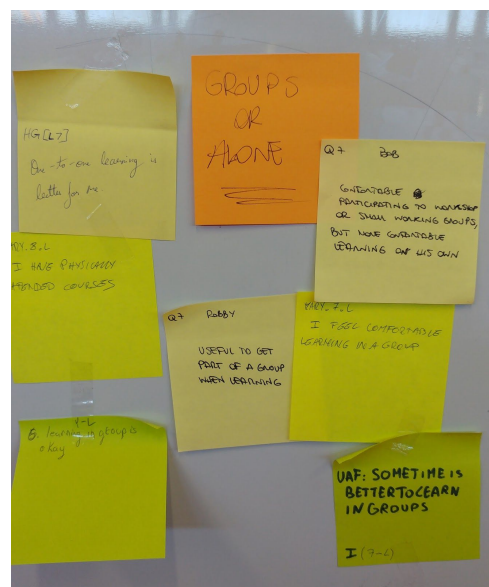 GROUPS
OR
ALONE
HG [L7]
One-to-one learning is
better for me.
Q7 BOB
CONFORTABLE
PARTICIPATING TO WORKSHOP
OR SMALL WORKING GROUPS,
BUT MORE CONFORTABLE
LEARNING ON HIS OWN
ARY.8.L
I HAVE PHYSICALLY
ENDED COURSES
Q7 ROBBY
USEFUL TO GET
PART OF A GROUP
WHEN LEARNING
MARY.7.L
I FEEL COMFORTABLE
LEARNING IN A GROUP
7-L
learning in group is
okay
UAF: SOMETIME IS
BETTER TO LEARN
IN GROUPS
I (7-L)